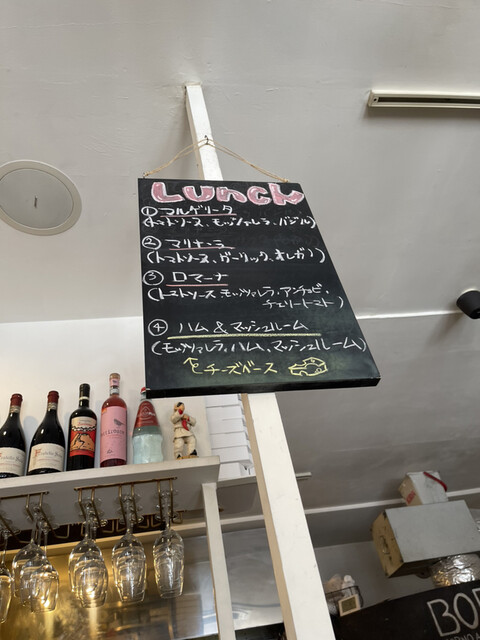 Lunch
① マルゲリータ
(トマトソース、モッツァレラ、バジル)
② マリナーラ
(トマトソース、ガーリック、オレガノ)
③ ロマーナ
(トマトソース モッツァレラ、アンチョビ、
チェリートマト)
④ ハム & マッシュルーム
(モッツァレラ、ハム、マッシュルーム)
チーズベース
BO